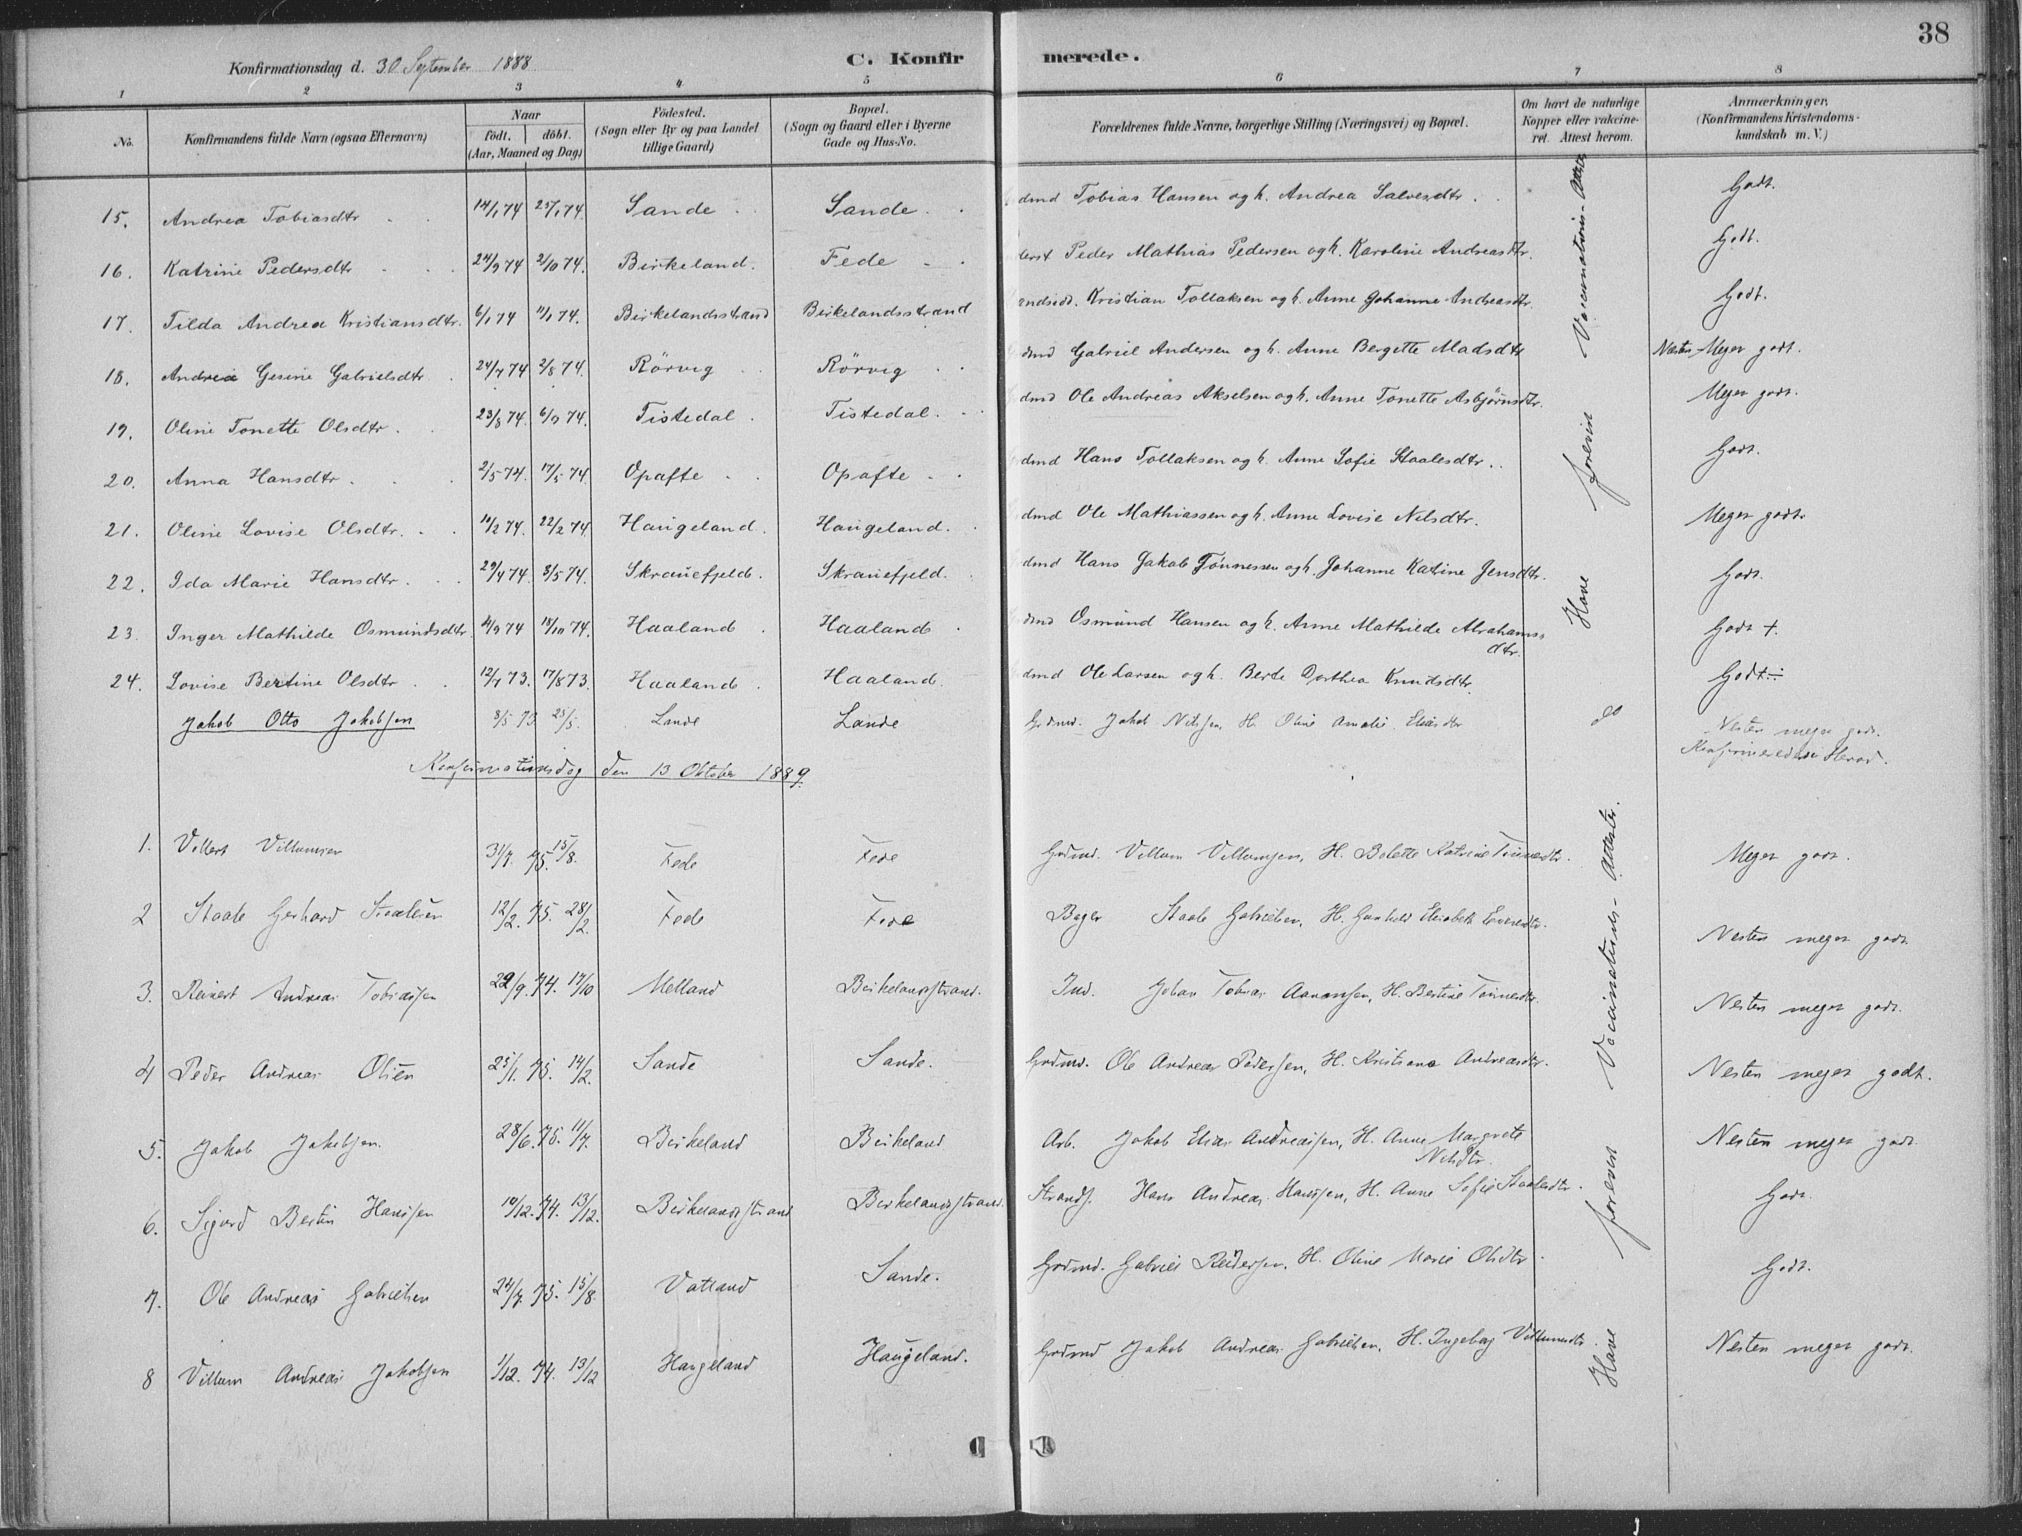 38
Konfirmationsdag d. 30 September 1888
C. Konfirmerede.
1 2 3 4 5 6 7 8
No. Konfirmandens fulde Navn (ogsaa Efternavn) Naar født. døbt. (Aar, Maaned og Dag) Fødested. (Sogn eller By og paa Landet tillige Gaard) Bopæl. (Sogn og Gaard eller i Byerne Gade og Hus-No. Forældrenes fulde Navne, borgerlige Stilling (Næringsvei) og Bopæl. Om havt de naturlige Kopper eller vakcineret. Attest herom. Anmærkninger. (Konfirmandens Kristendomskundskab m. V.)
15. Andrea Tobiasdtr 14/1 74 25/1 74. Sande Sande dmd Tobias Hansen og h. Andrea Salvesdtr. Godt.
16. Katrine Pedersdtr 24/9 74 2/10 74. Birkeland. Fede Peder Mathias Pedersen og h. Karoline Andreasdtr. Godt.
17. Tilda Andrea Kristiansdtr. 6/1 74 11/1 74. Birkelandsstrand Birkelandsstrand andsidt. Kristian Tollaksen og h. Anne Johanne Andreasdtr. Godt.
18. Andrea Gesine Gabrielsdtr 24/7 74 2/8 74. Rörvig Rörvig dmd Gabriel Andersen og h. Anne Bergitte Madsdtr Næsten Meget godt.
19. Oline Tonette Olsdtr. 23/8 74. 6/9 74. Tistedal. Tistedal. dmd Ole Andreas Akselsen og h. Anne Tonette Asbjörnsdtr. Meget godt.
20. Anna Hansdtr. 2/5 74. 17/5 74. Opafte Opafte dmd Hans Tollaksen og h. Anne Sofie Staalesdtr. Godt.
21. Oline Lovise Olsdtr. 10/2 74. 22/2 74. Haugeland. Haugeland. dmd Ole Mathiassen og h. Anne Lovise Nilsdtr. Meget godt
22. Ida Marie Hansdtr. 29/4 74 3/5 74. Skrauefjeld. Skrauefjeld. dmd Hans Jakob Tönnessen og h. Johanne Katine Jensdtr. Godt.
23. Inger Mathilde Osmundsdtr 4/9 74 18/10 74. Haaland Haaland dmd Osmund Hansen og h. Anne Mathilde Abrahams-
dtr. Godt +.
24. Lovise Bertine Olsdtr 12/7 73. 17/8 73. Haaland. Haaland. dmd Ole Larsen og h. Berte Dorthea Knudsdtr. Godt ÷
Jakob Otto Jakobsen 8/5 73 25/5. Lande Lande Grdmd. Jakob Nilsen, H. Oline Amalie Eliasdtr do Nesten meget godt.
Konfirmeredes i Herad.
Have forevist Vaccinations-Attester
Konfirmationsdag den 13 Oktober 1889.
1. Villert Villumsen 31/7. 75. 15/8. Fede Fede Grdmd. Villum Villumsen, H. Bolette Katrine Tönnesdtr. Meget godt.
2 Staale Gerhard Staalesen 12/2. 75. 28/2. Fede Fede Bager Staale Gabrielsen, H. Gunhild Elisabeth Evensdtr. Nesten meget godt.
3. Reinert Andreas Tobiassen 22/9. 74. 17/10 Melland Birkelandsstrand. Ind. Johan Tobias Aanonsen, H. Bertine Tönnesdtr. Nesten meget godt.
4 Peder Andreas Olsen 25/1. 75. 14/2. Sande Sande. Grdmd. Ole Andreas Pedersen, H. Kristiane Andreasdtr. Nesten meget godt.
5. Jakob Jakobsen. 28/6. 75. 11/7. Birkeland Birkeland Arb. Jakob Elias Andreassen, H. Anne Margrete
Nilsdtr. Nesten meget godt
6. Sigurd Bertin Hanssen 10/12. 74. 13/12. Birkelandsstrand Birkelandsstrand. Strands. Hans Andreas Hanssen, H. Anne Sofie Staalesdtr. Godt.
7. Ole Andreas Gabrielsen 24/7. 75. 15/8. Vatland Sande. Grdmd. Gabriel Reidersen, H. Oline Marie Olsdtr. Godt.
8 Villum Andreas Jakobsen 1/12. 74. 13/12 Haugeland Haugeland. Grdmd Jakob Andreas Gabrielsen, H. Ingeborg Villumsdtr Nesten meget godt.
Have forevist Vaccinations-Attester.